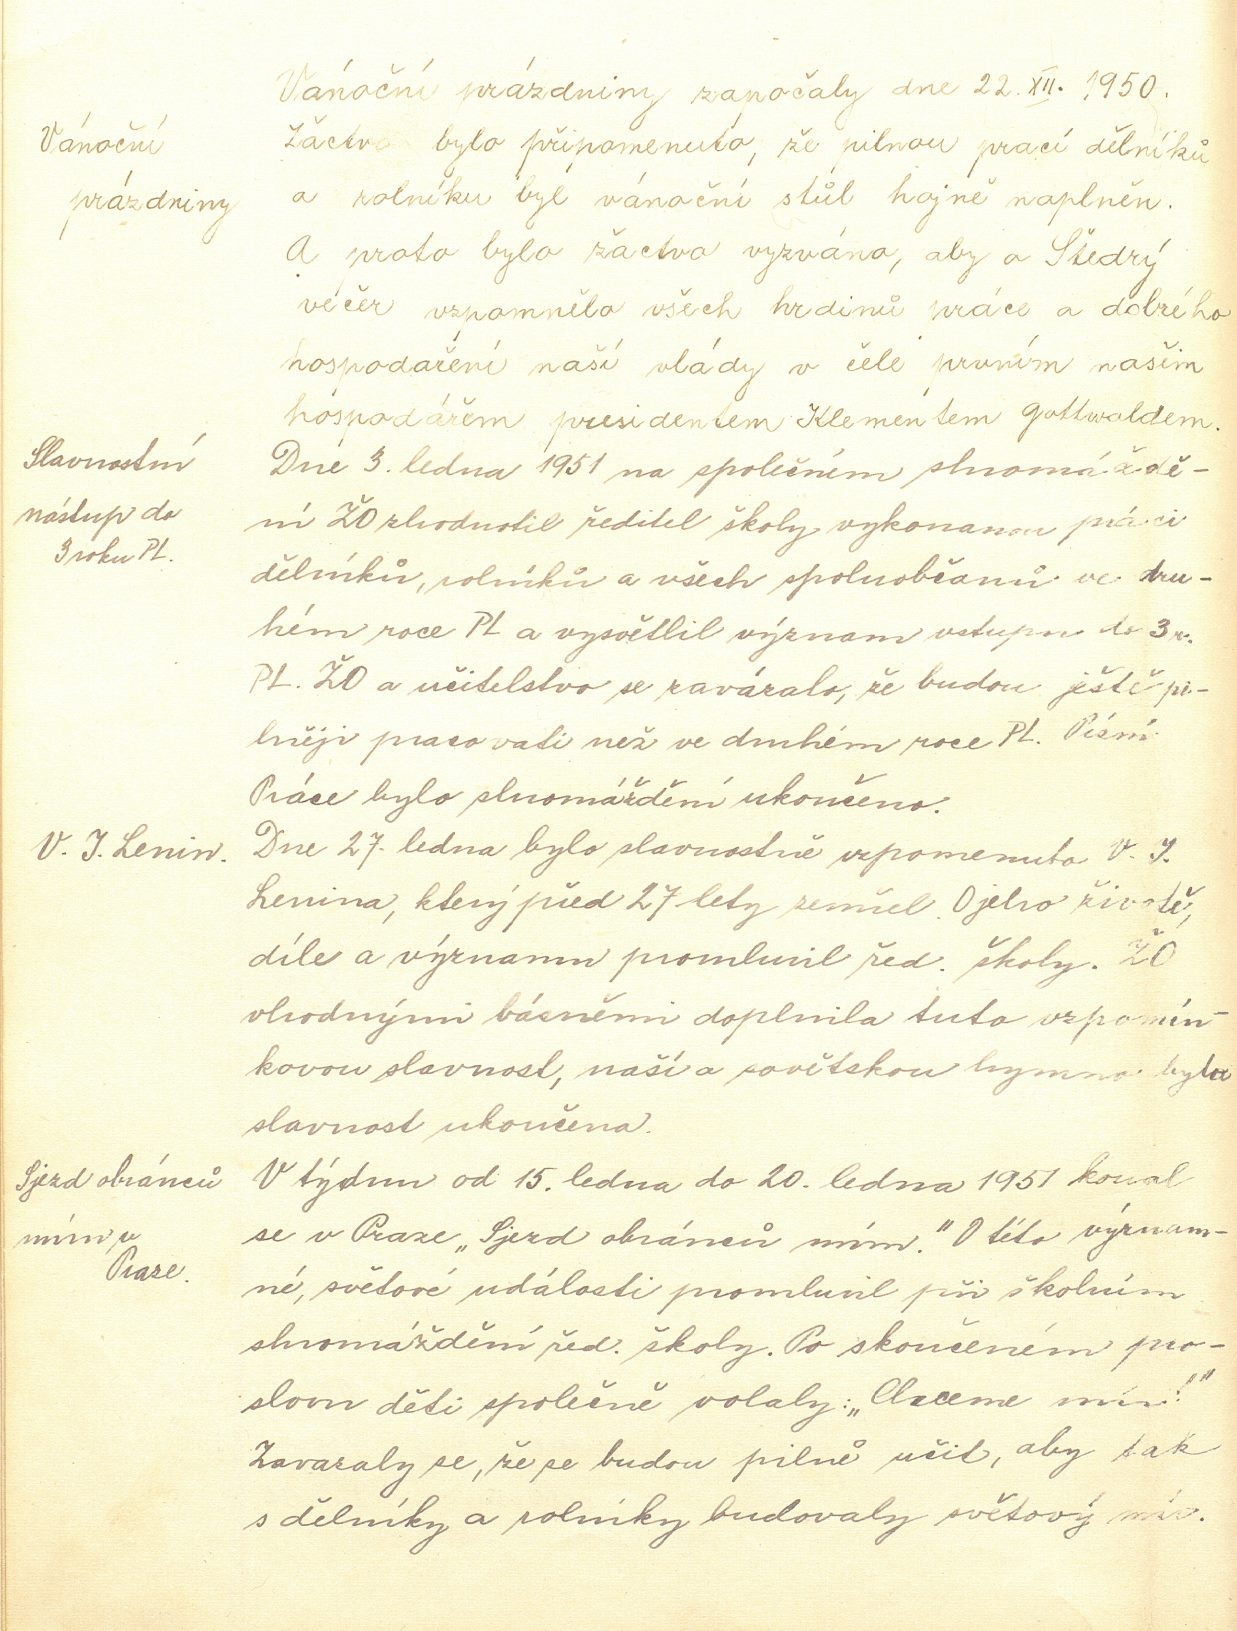 Vánoční prázdniny započaly dne 22. XII. 1950.
Vánoční
prázdniny
Žactvo bylo připomenuto, že pilnou prací dělníků
a rolníku byl vánoční stůl hojně naplněn.
A proto bylo žactvo vyzváno, aby o Štedrý
večer vzpomnělo všech hrdinů práce a dobrého
hospodaření naší vlády v čele prvním našim
hospodářem presidentem Klementem Gottwaldem.
Slavnostní
nástup do
3 roku PL.
Dne 3. ledna 1951 na společném shromáždě-
ní ŽO zhodnotil ředitel školy vykonanou práci
dělníků, rolníků a všech spoluobčanů ve dru-
hém roce PL a vysvětlil význam vstupu do 3 r.
PL. ŽO a učitelstvo se zavázalo, že budou ještě pi-
lněji pracovati než ve druhém roce PL. Písní
Práce bylo shromáždění ukončeno.
V. I. Lenin.
Dne 27. ledna bylo slavnostně vzpomenuto V. I.
Lenina, který před 27 lety zemřel. O jeho životě,
díle a významu promluvil řed. školy. ŽO
vhodnými básněmi doplnila tuto vzpomín-
kovou slavnost, naší a sovětskou hymnou byla
slavnost ukončena.
Sjezd obránců
míru v
Praze.
V týdnu od 15. ledna do 20. ledna 1951 konal
se v Praze „Sjezd obránců míru." O této význam-
né, světové události promluvil při školním
shromáždění řed. školy. Po skončeném pro-
slovu děti společně volaly: „Chceme mír!"
Zavazaly se, že se budou pilně učit, aby tak
s dělníky a rolníky budovaly světový mír.